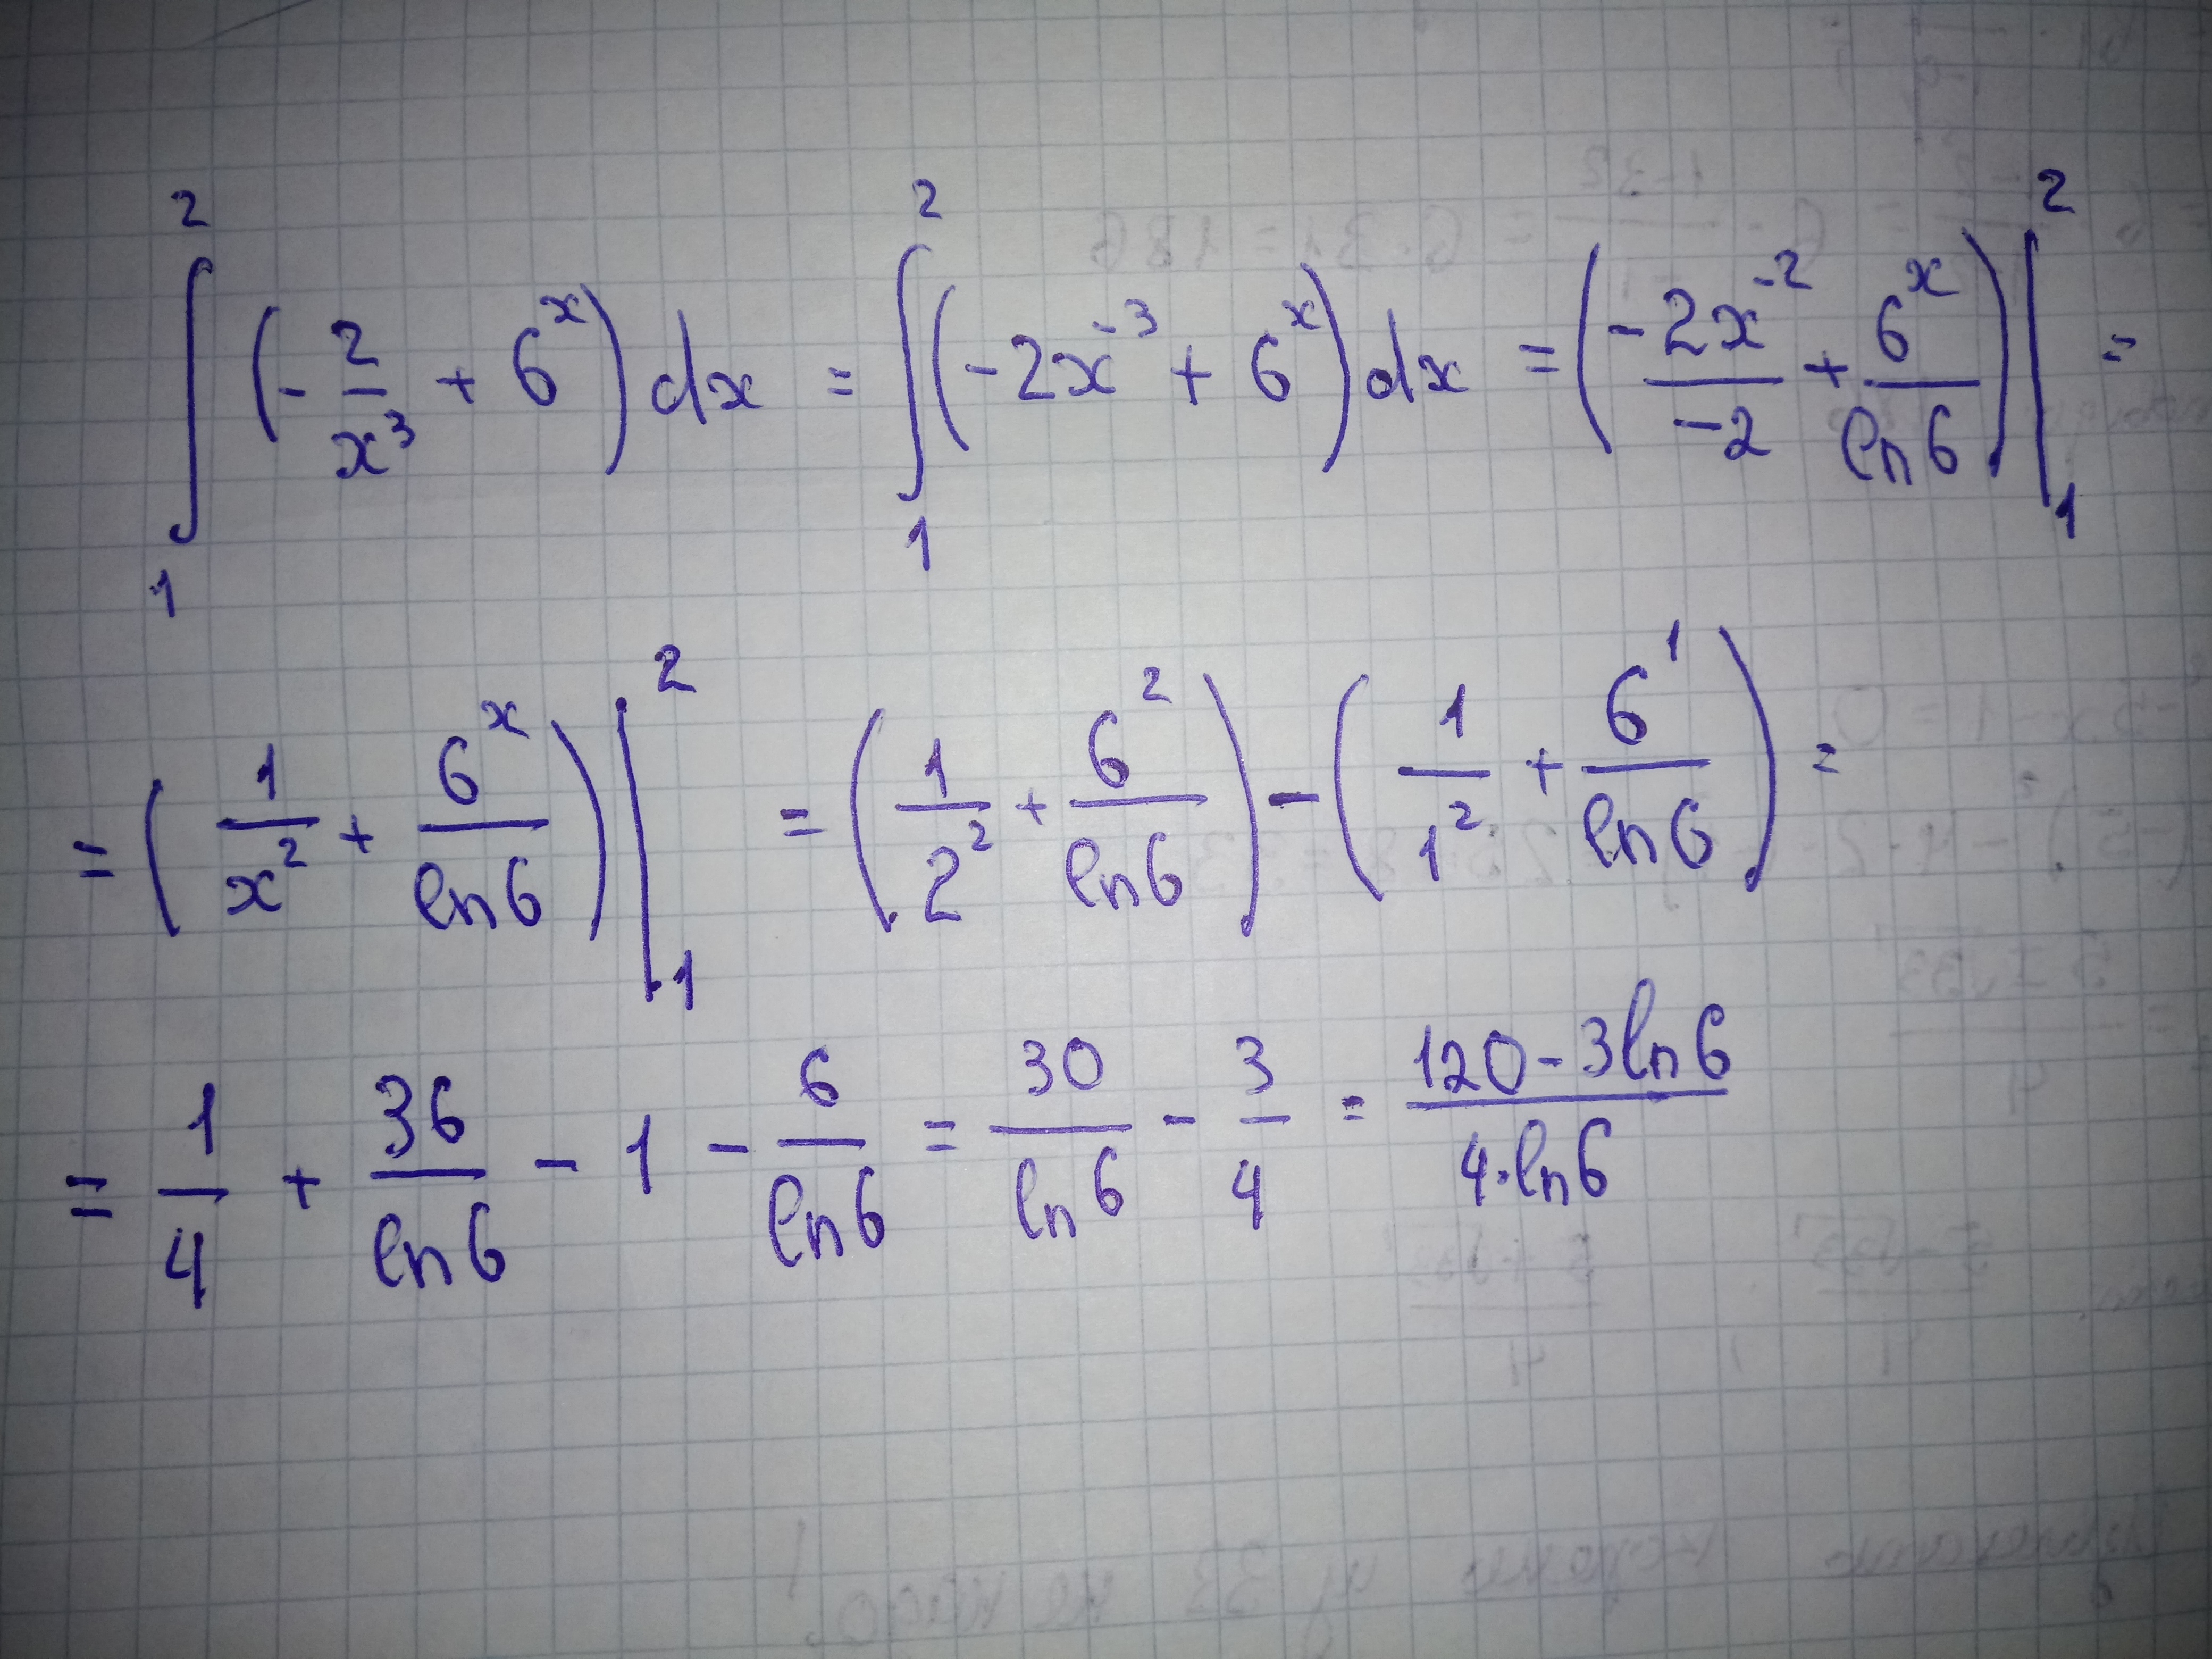 ∫₁² (-2/x³ + 6ˣ) dx = ∫₁² (-2x⁻³ + 6ˣ) dx = (-2x⁻²/-2 + 6ˣ/ln6) |₁² =
= (1/x² + 6ˣ/ln6) |₁² = (1/2² + 6²/ln6) - (1/1² + 6¹/ln6) =
= 1/4 + 36/ln6 - 1 - 6/ln6 = 30/ln6 - 3/4 = 120-3ln6/4·ln6